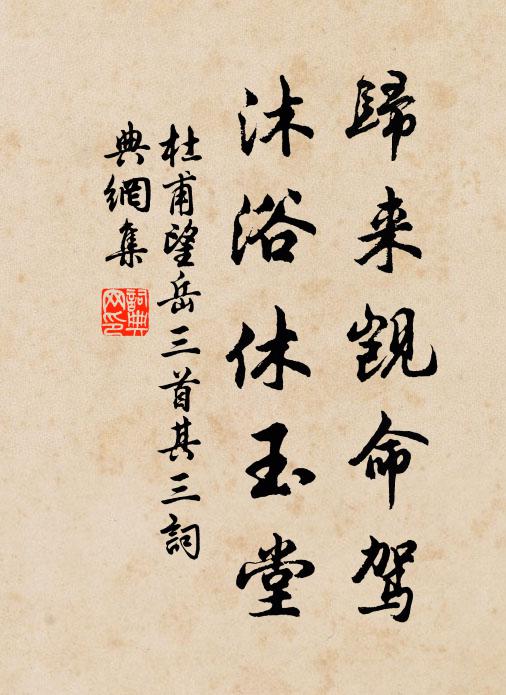 歸来覬命駕
沐浴休玉堂
杜甫望岳三首其三詞
典網集
詞典
网印